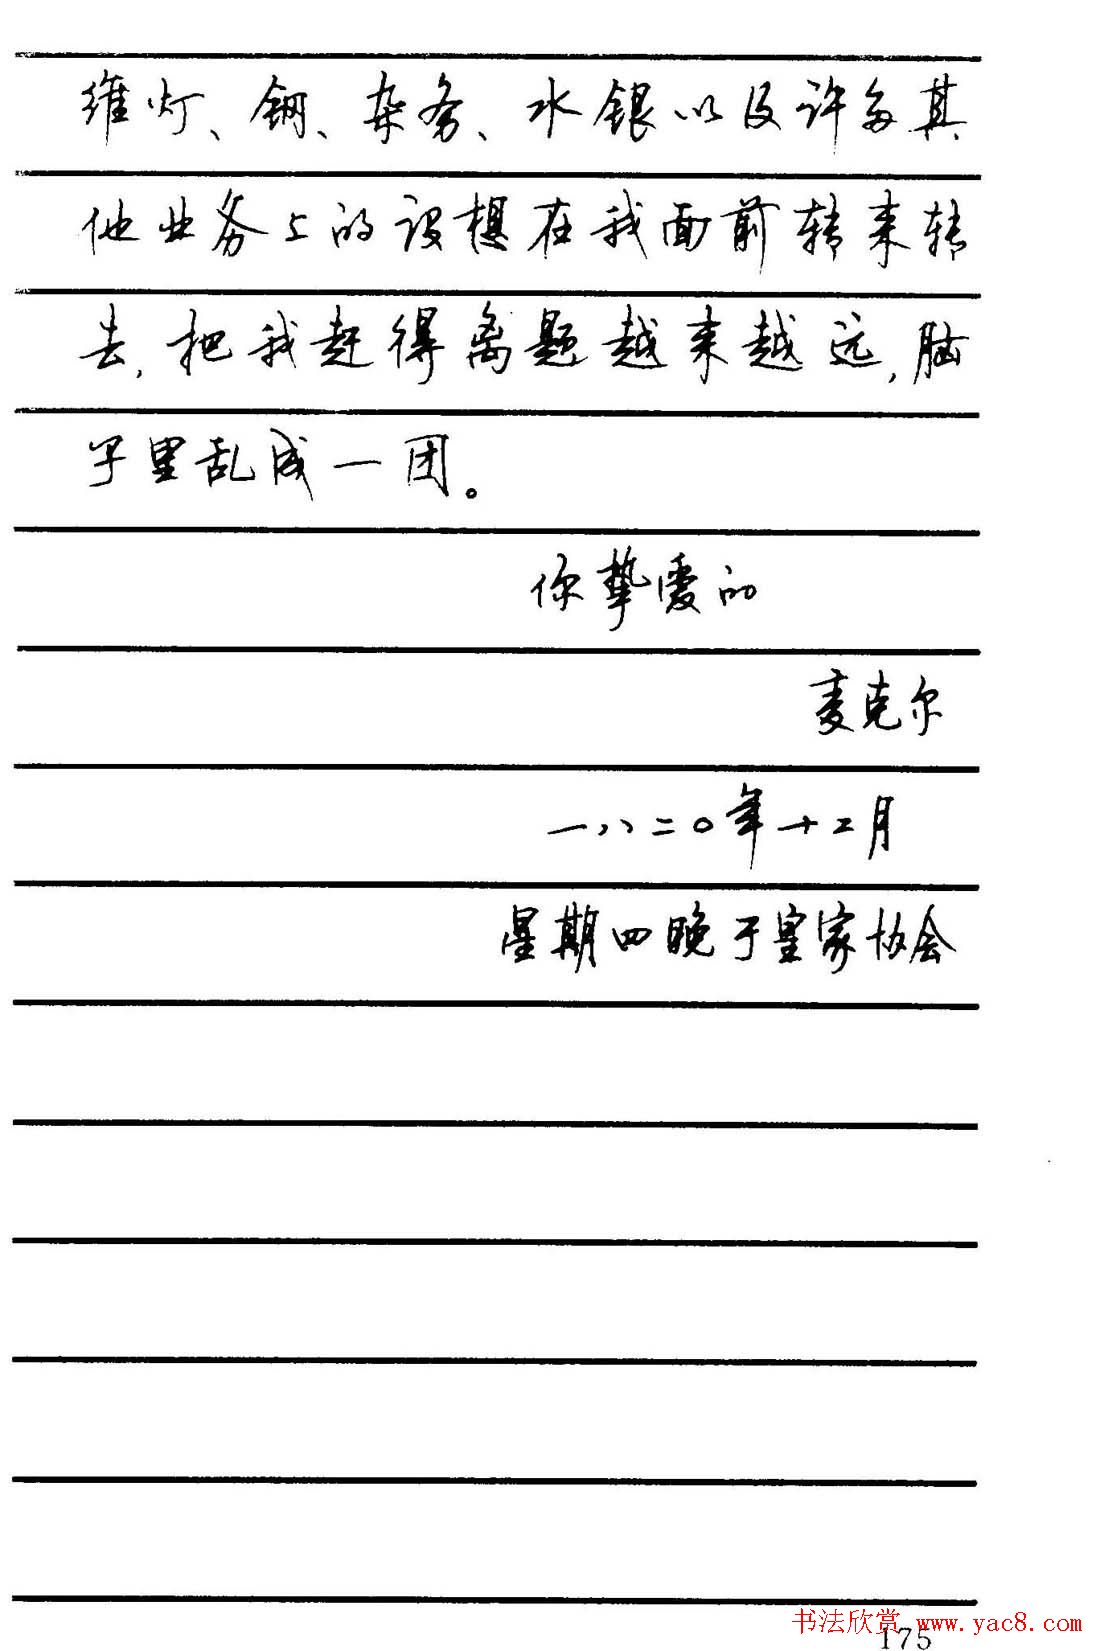 维灯、钢、杂务、水银以及许多其
他业务上的设想在我面前转来转
去,把我赶得离题越来越远,脑
子里乱成一团。
你挚爱的
麦克尔
一八二〇年十二月
星期四晚于皇家协会
书法欣赏 www.yac8.com
175